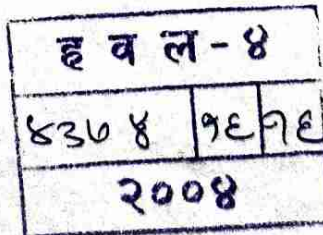 ह व ल - ४
४३७४ १६ १६
२००४